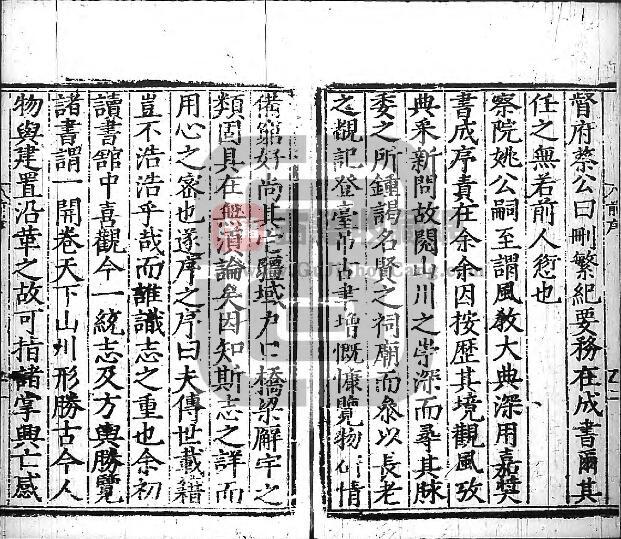 督府蔡公曰刪繁紀要務在成書爾其
任之無若前人愆也
察院姚公嗣至謂風教大典深用嘉奬
書成序責在余余因按歷其境觀風攷
典釆新問故閱山川之深而尋其脉
委之所鍾謁名賢之祠廟而叅以長老
之覩記登臺弔古書增慨慷覽物情
備豁好尚其它疆域力口橋梁廨宇之
類固具在無湏論矣因知斯志之詳而
用心之密也遂序之序曰夫傳世載籍
豈不浩浩乎哉而誰識志之重也余初
讀書舘中喜觀今一統志及方輿勝覽
諸書謂一開卷天下山川形勝古今人
物與建置沿革之故可指諸掌興亡感